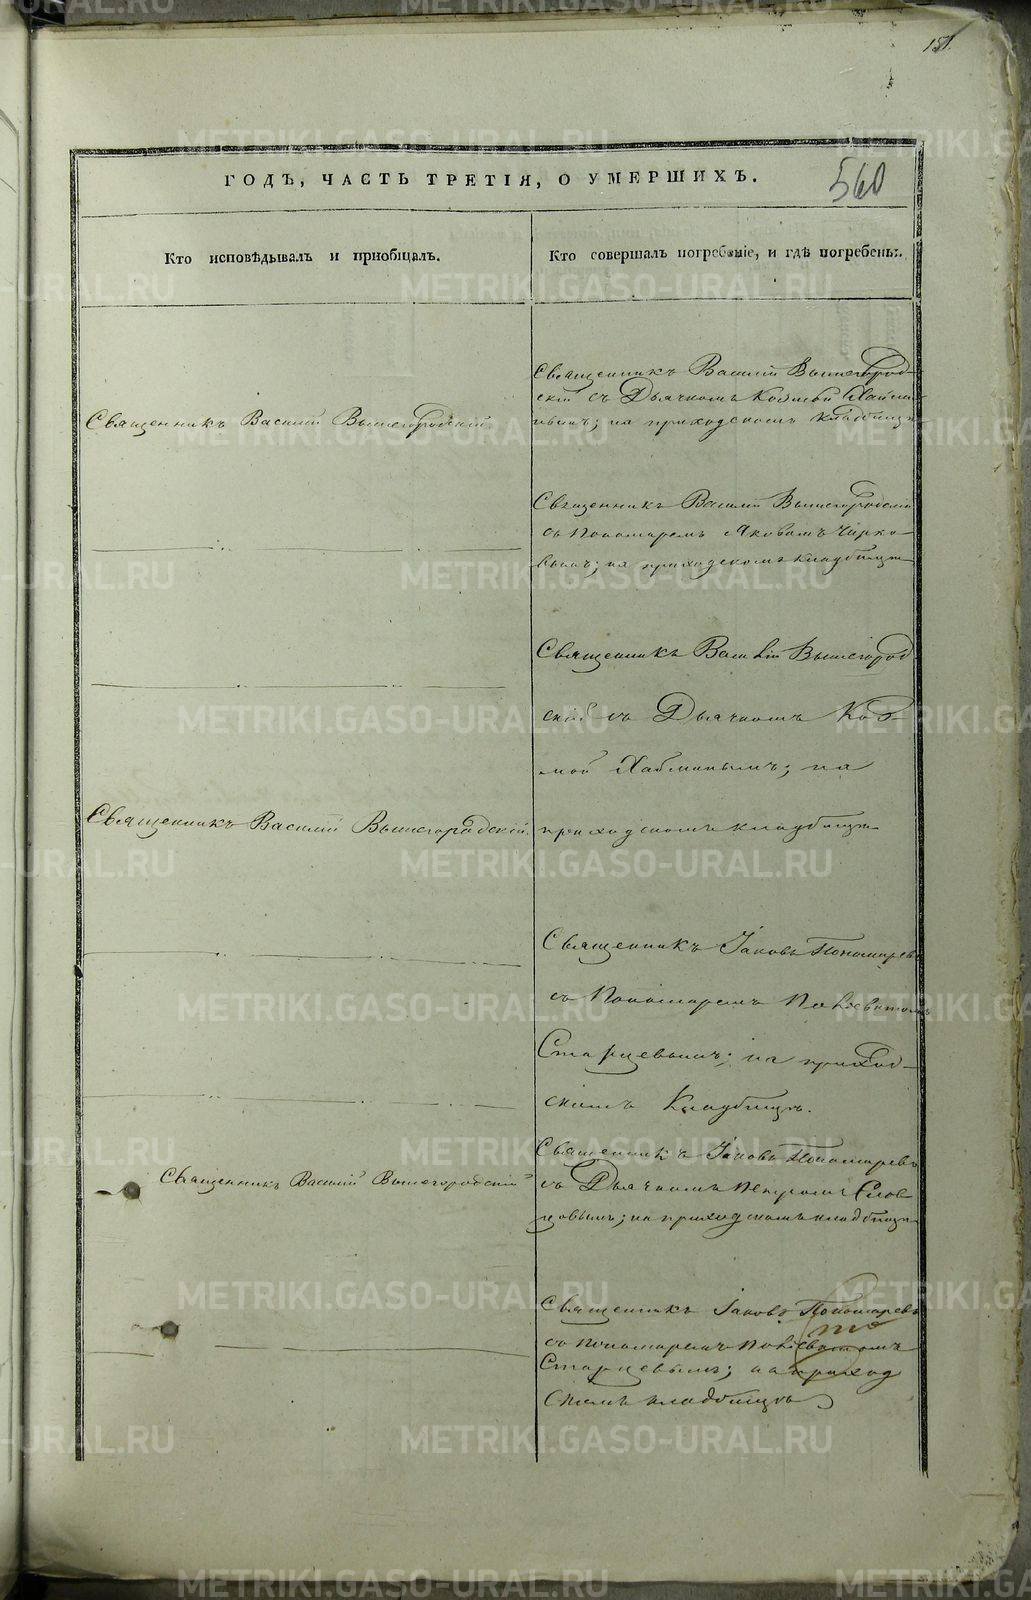 151.
ГОДЪ, ЧАСТЬ ТРЕТІЯ, О УМЕРШИХЪ.
560
Кто исповѣдывалъ и пріобщалъ.
Кто совершалъ погребеніе, и гдѣ погребены.
Священникъ Василій Вышегородскій.
Священникъ Василій Вышегород-
скій съ Дьячкомъ Козмой
на приходскомъ кладбищѣ
Священникъ Василій Вышегородскій
съ Пономаремъ Яковомъ Чирко-
вымъ; на приходскомъ кладбищѣ
Священникъ Василій Вышегород
скій съ Дьячкомъ Коз-
мой Хабминымъ; на
приходскомъ кладбищѣ
Священникъ Василій Вышегородскій.
Священникъ Іаковъ Пономаревъ
съ Пономаремъ
Старцевымъ; на приход-
скомъ Кладбищѣ.
Священникъ Василій Вышегородскій
Священникъ Іаковъ Пономаревъ
съ Дьячкомъ Петромъ Слов-
цовымъ; на приходскомъ кладбищѣ
Священникъ Іаковъ Пономаревъ
съ Пономаремъ
Старцевымъ; на приход
скомъ кладбищѣ
METRIKI.GASO-URAL.RU